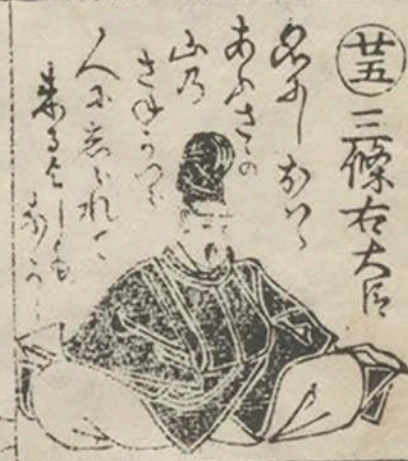 廿五
三條右大臣
名にしおはゝ
あふさかの
山乃
さねかつら
人に志られて
来るよしも
かな